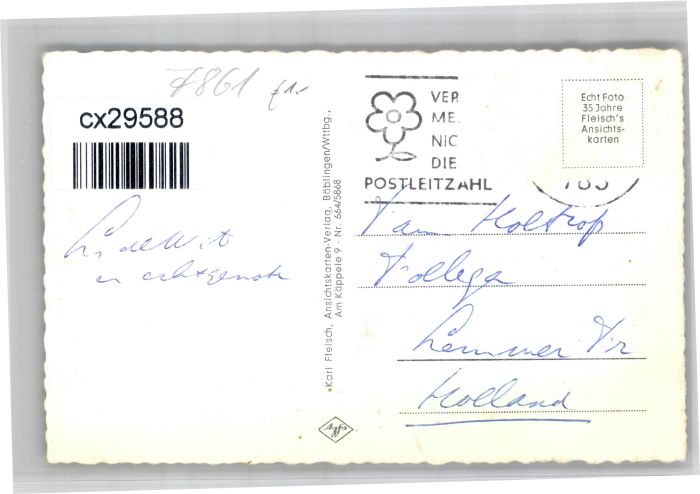 7861
£1-
cx29588
VER
ME.
NIC
DIE
POSTLEITZAHL
Echt Foto
35 Jahre
Fleisch's
Ansichts-
karten
785
L. de Wit
en echtgenote
Fam Holtrop
Lemmer Fr
Holland
Karl Fleisch, Ansichtskarten-Verlag, Böblingen/Wttbg.,
Am Käppele 9 - Nr. 664/5868
Agfa